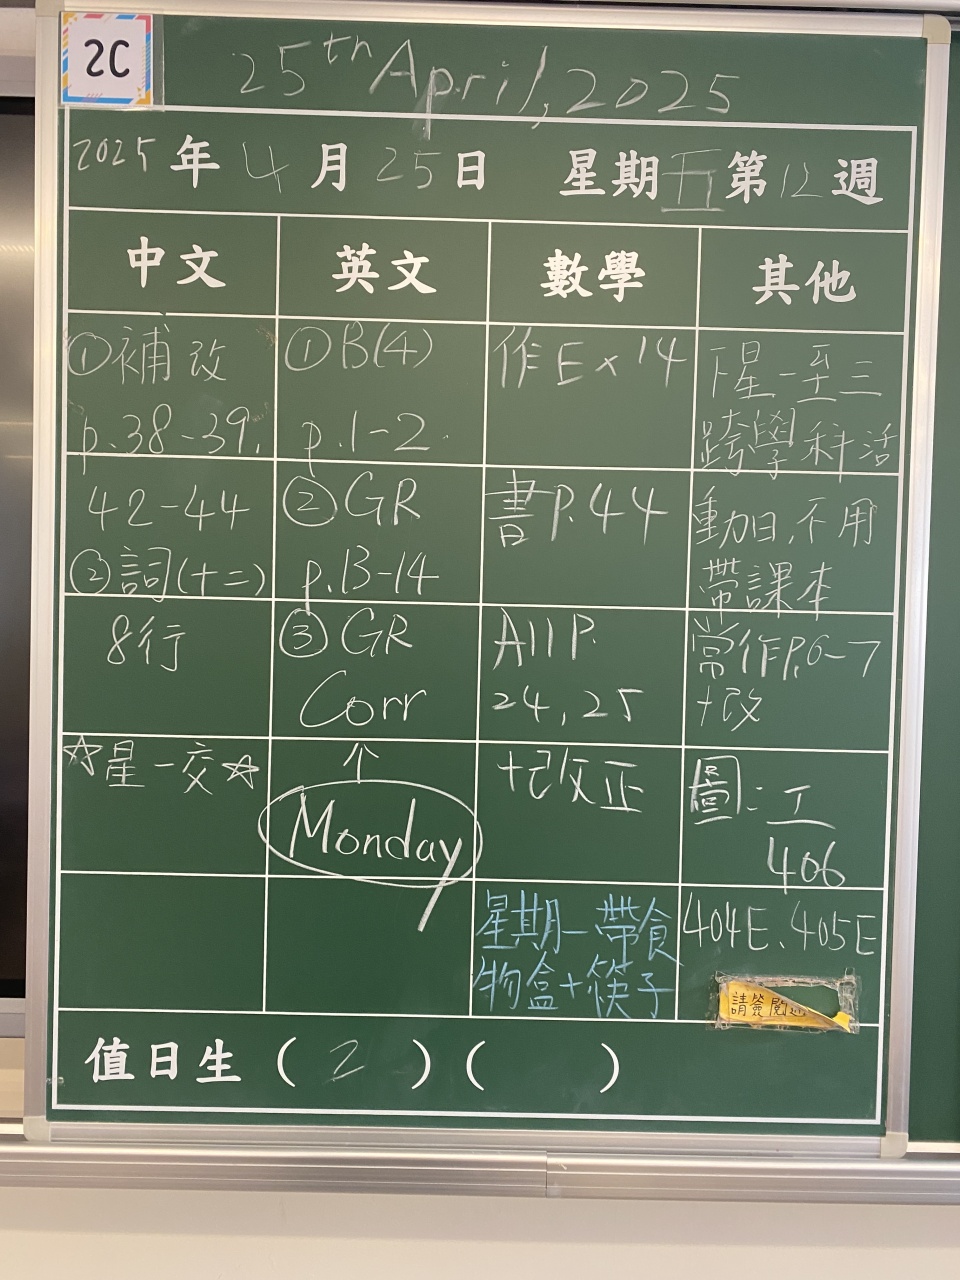 2C
25th April, 2025
2025年4月25日 星期五第12週
中文
①補改
p.38-39.
42-44
②詞(十二)
8行
☆星一交☆
英文
①B(4)
p.1-2.
②GR
p.13-14
③GR
Corr
↑
Monday
數學
作Ex14
書P.44
A11P.
24,25
+改正
星期一帶食
物盒+筷子
其他
下星一至三
跨學科活
動日,不用
帶課本
常作P.6-7
+改
圖:工
406
404E、405E
請簽閱
值日生(2)( )